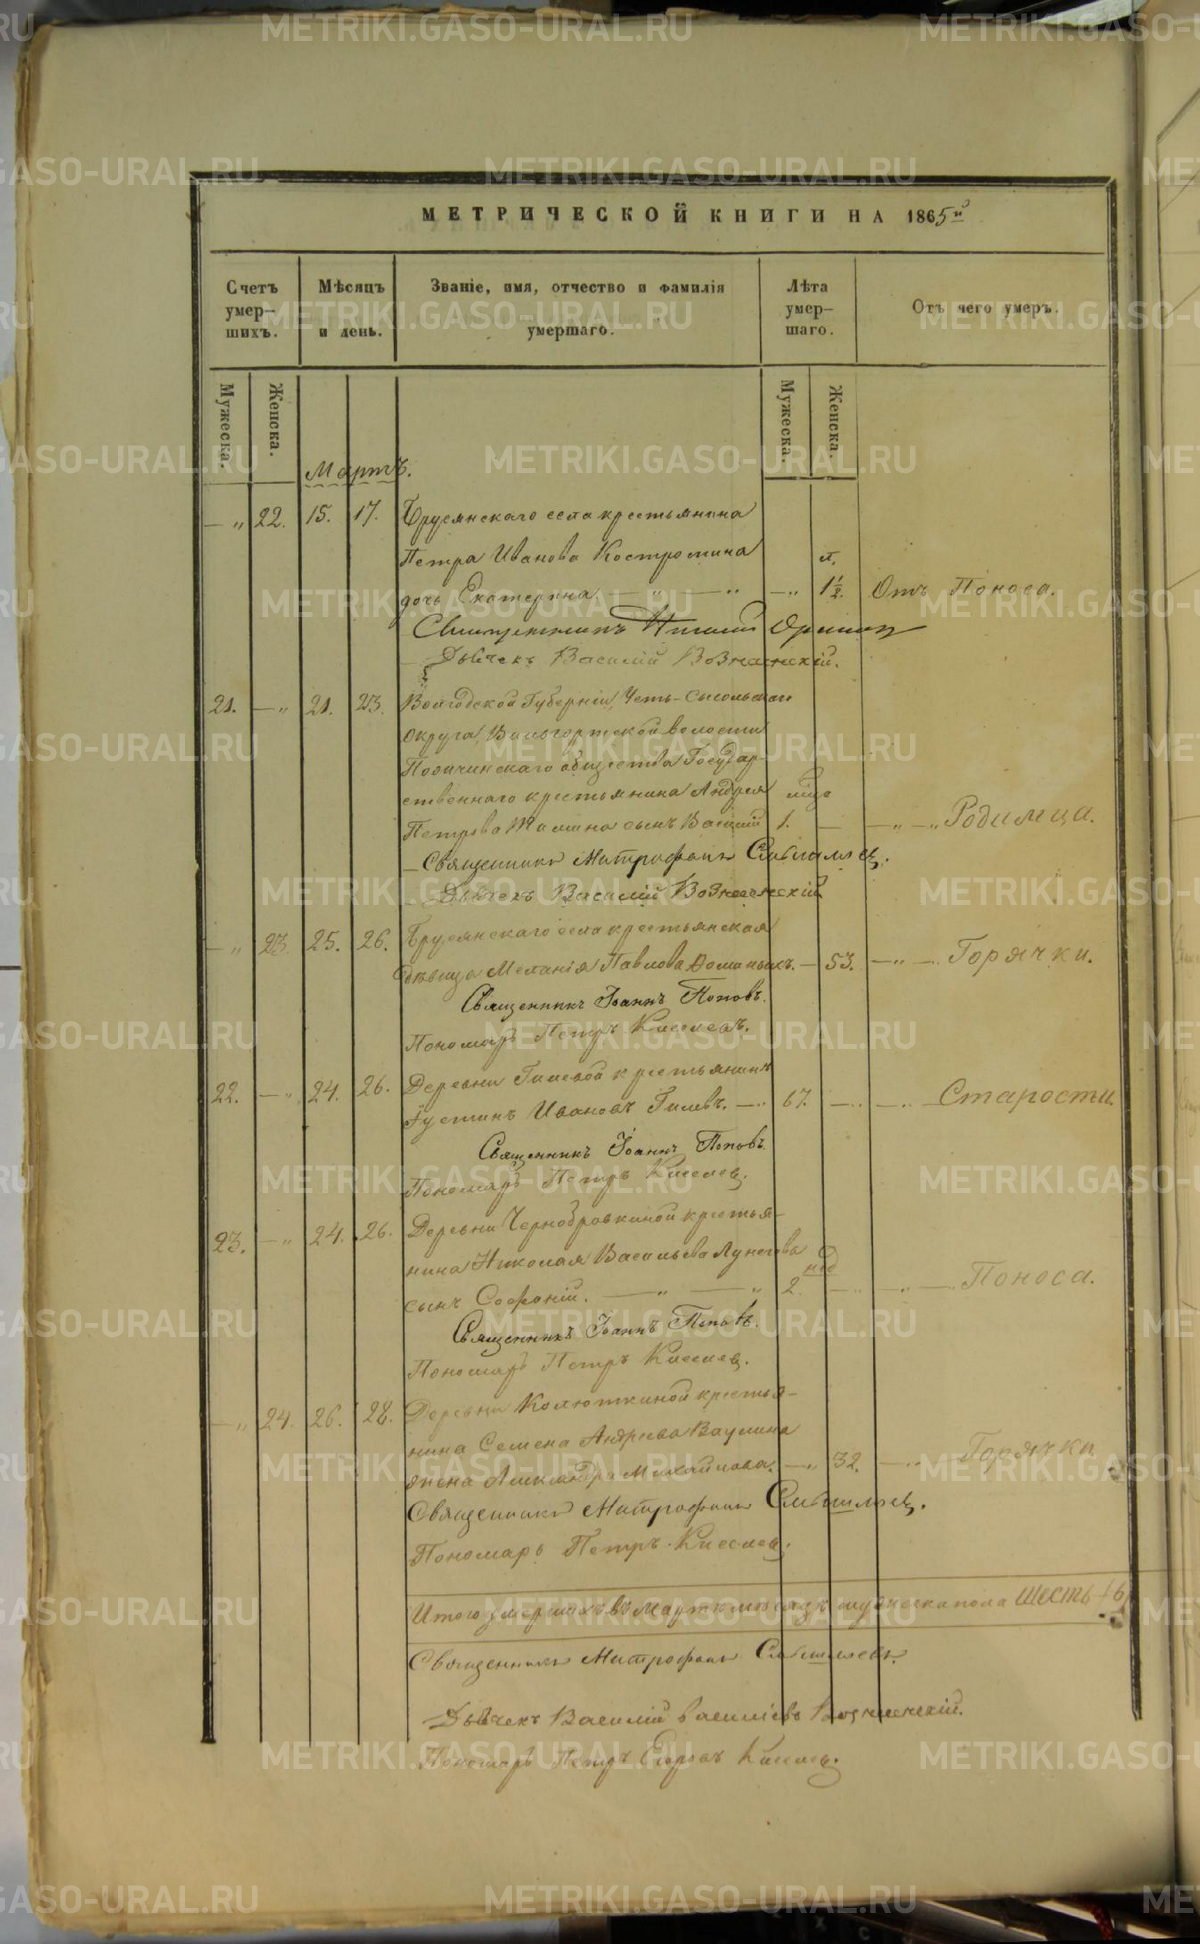 МЕТРИЧЕСКОЙ КНИГИ НА 1865й
Счетъ умер-шихъ.
Мѣсяцъ и день.
Званіе, имя, отчество и фамилія умершаго.
Лѣта умер-шаго.
Отъ чего умеръ.
Мужеска.
Женска.
Мужеска.
Женска.
Мартъ.
— „ 22. 15. 17. Бруснянскаго села крестьянина
Петра Иванова Костромина л.
дочь Екатерина — „ — „ — „ 1½. Отъ Поноса.
Священникъ
Дьячекъ Василій Вознесенскій.
21. — „ 21. 23. Вологодской Губерніи, Усть-Сысольскаго
Округа, Вильгортской волости
общества Государ-
ственнаго крестьянина Андрея
Петрова сынъ Василій 1. — — „ — Родимца.
Священникъ Митрофанъ
Дьячекъ Василій Вознесенскій
— „ 23. 25. 26. Бруснянскаго села крестьянская
дѣвица Меланія Павлова — 53. — „ — Горячки.
Священникъ Іоаннъ Поповъ.
Пономарь Петръ Киселевъ.
22. — „ 24. 26. Деревни Гилевой крестьянинъ
Іустинъ Ивановъ Гилевъ. — „ 67. — „ — Старости.
Священникъ Іоаннъ Поповъ.
Пономарь Петръ Киселевъ.
23. — „ 24. 26. Деревни Чернобровкиной крестья-
нина Николая Васильева Лунегова нед
сынъ Софоній. — „ — „ 2. — — „ — Поноса.
Священникъ Іоаннъ Поповъ.
Пономарь Петръ Киселевъ.
— „ 24. 26. 28. Деревни Колюткиной крестья-
нина Семена Андреева Ваулина
жена Александра Михайлова. — „ 32. — „ Горячки
Священникъ Митрофанъ
Пономарь Петръ Киселевъ.
Итого умершихъ въ Мартѣ мѣсяцѣ мужеска пола шесть 6
Священникъ Митрофанъ
Дьячекъ Василій Васильевъ Вознесенскій.
Пономарь Петръ Егоровъ Киселевъ.
METRIKI.GASO-URAL.RU